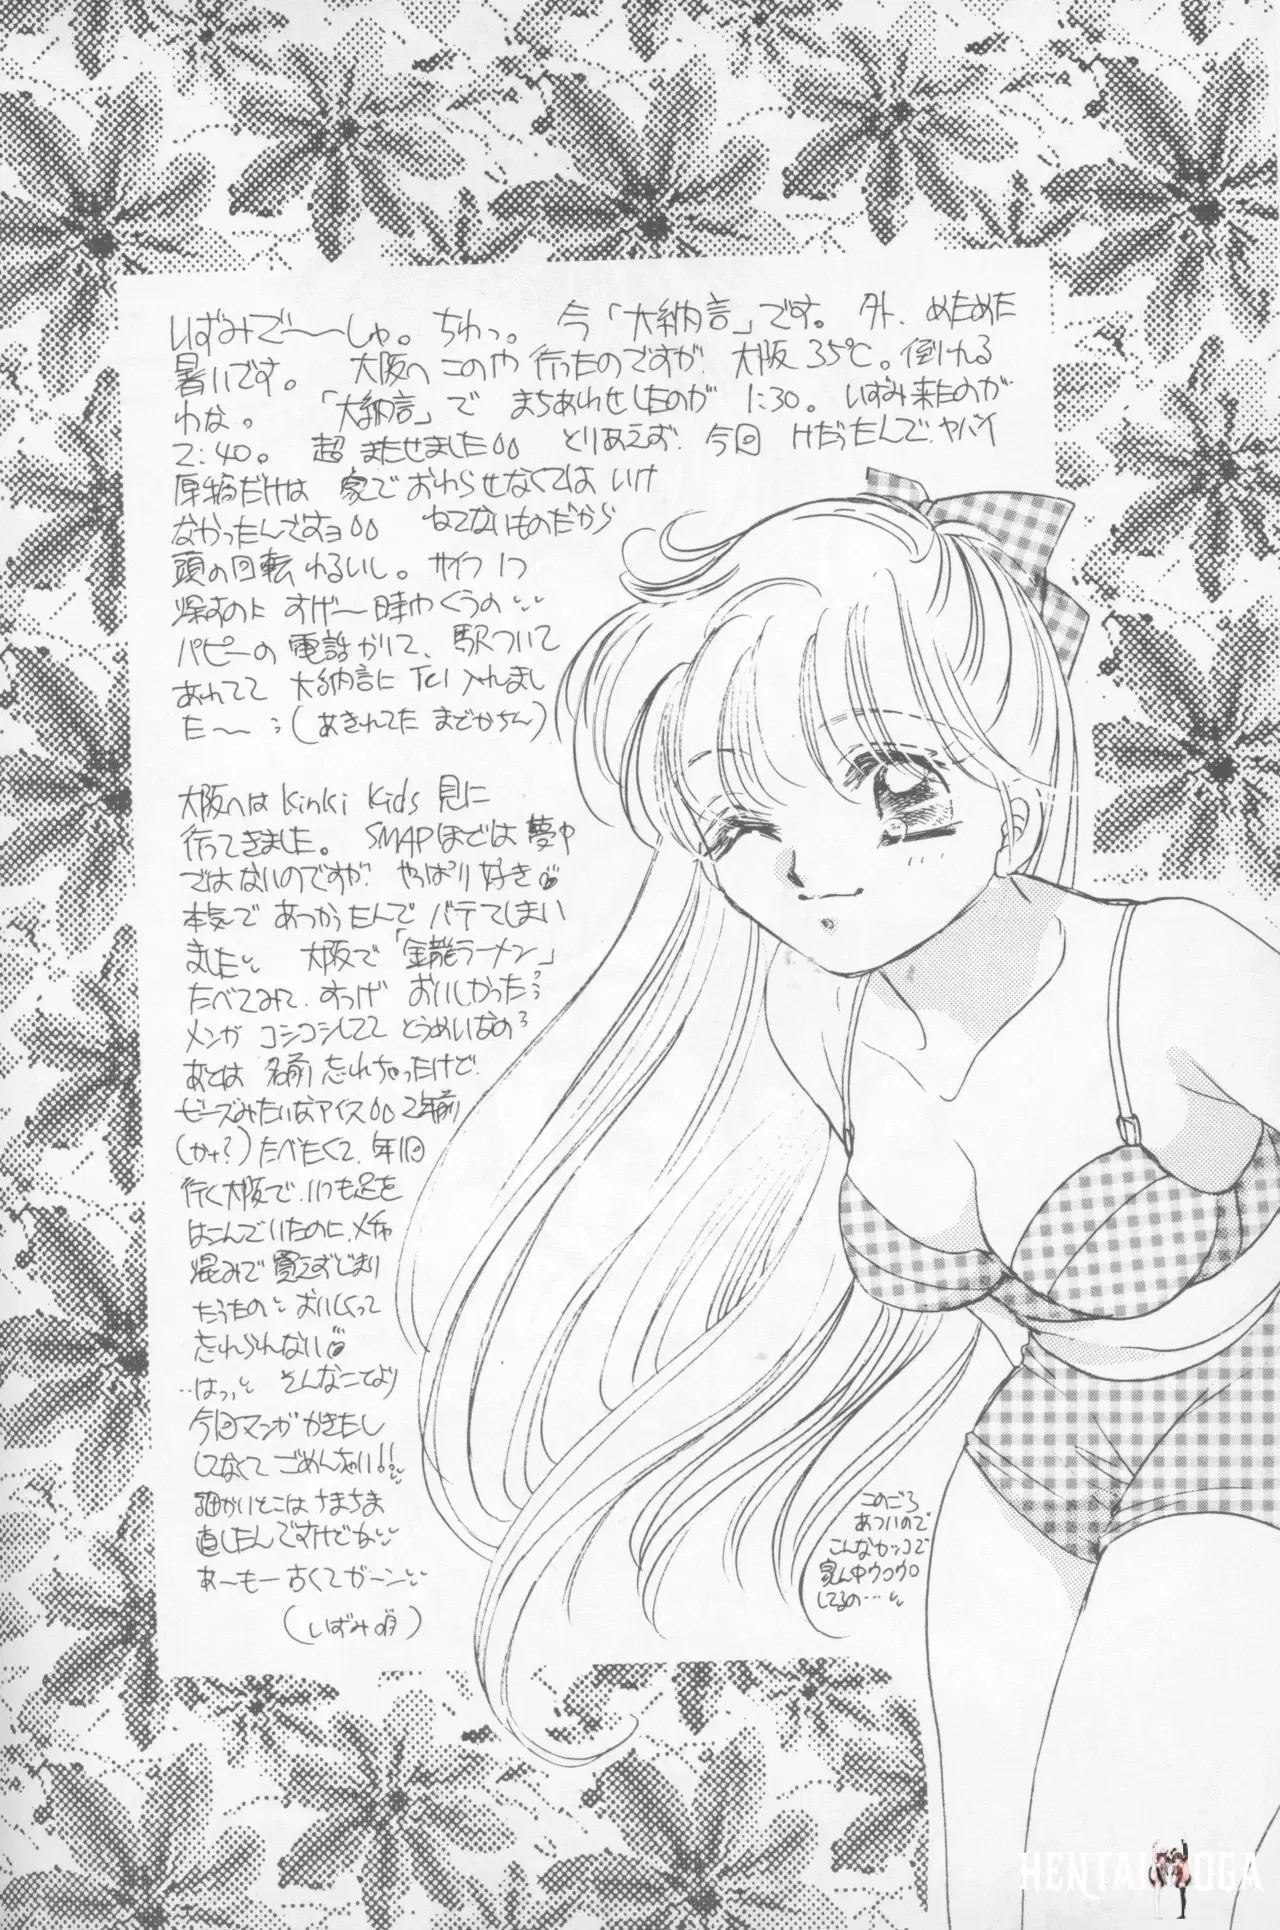 いずみで〜〜しゅ。ちわっ。 今「大納言」です。 外、めためた
暑いです。 大阪へこのや行ったのですが、大阪35℃。倒れる
わな。 「大納言」で まちあわせしたのが 1:30。いずみ来たのが
2:40。 超 またせました とりあえず、今回 だったんで、ヤバイ
原稿だけは 家で おわらせなくては いけ
なかったんですョ ねてないものだから
頭の回転 わるいし。サイフ 1つ
すのに すげ〜 時間くうの
パピーの 電話かいて、駅ついて
あわてて 大納言に Tel 入れまし
た〜〜 (あきれてた まどかちん)
大阪へは Kinki Kids 見に
行ってきました。 SMAPほどは 夢中
ではないのですが、やっぱり好き
本気で あつかったんで バテてしまい
ました 大阪で「金龍ラーメン」
たべてみて、すっげ おいしかった
メンが コシコシしてて とうめいなの
あとは 名前 忘れちゃったけど、
ビーズみたいなアイス 2年前
(かナ?) たべたくて、年1回
行く大阪で、いつも足を
はこんでいたのに、メチャ
混みで 覚えずじまり
だったの おいしくって
忘れられない
…はっ、 そんなこてより
今回マンガ かきたし
してなくて ごめんちゃい!!
細かいとこは ちまちま
直したんですけどね
あーもー 古くてガーン
(いずみ 唄)
このごろ
あついので
こんなカッコで
家ん中ウロウロ
してるの…
HENTAI OGA